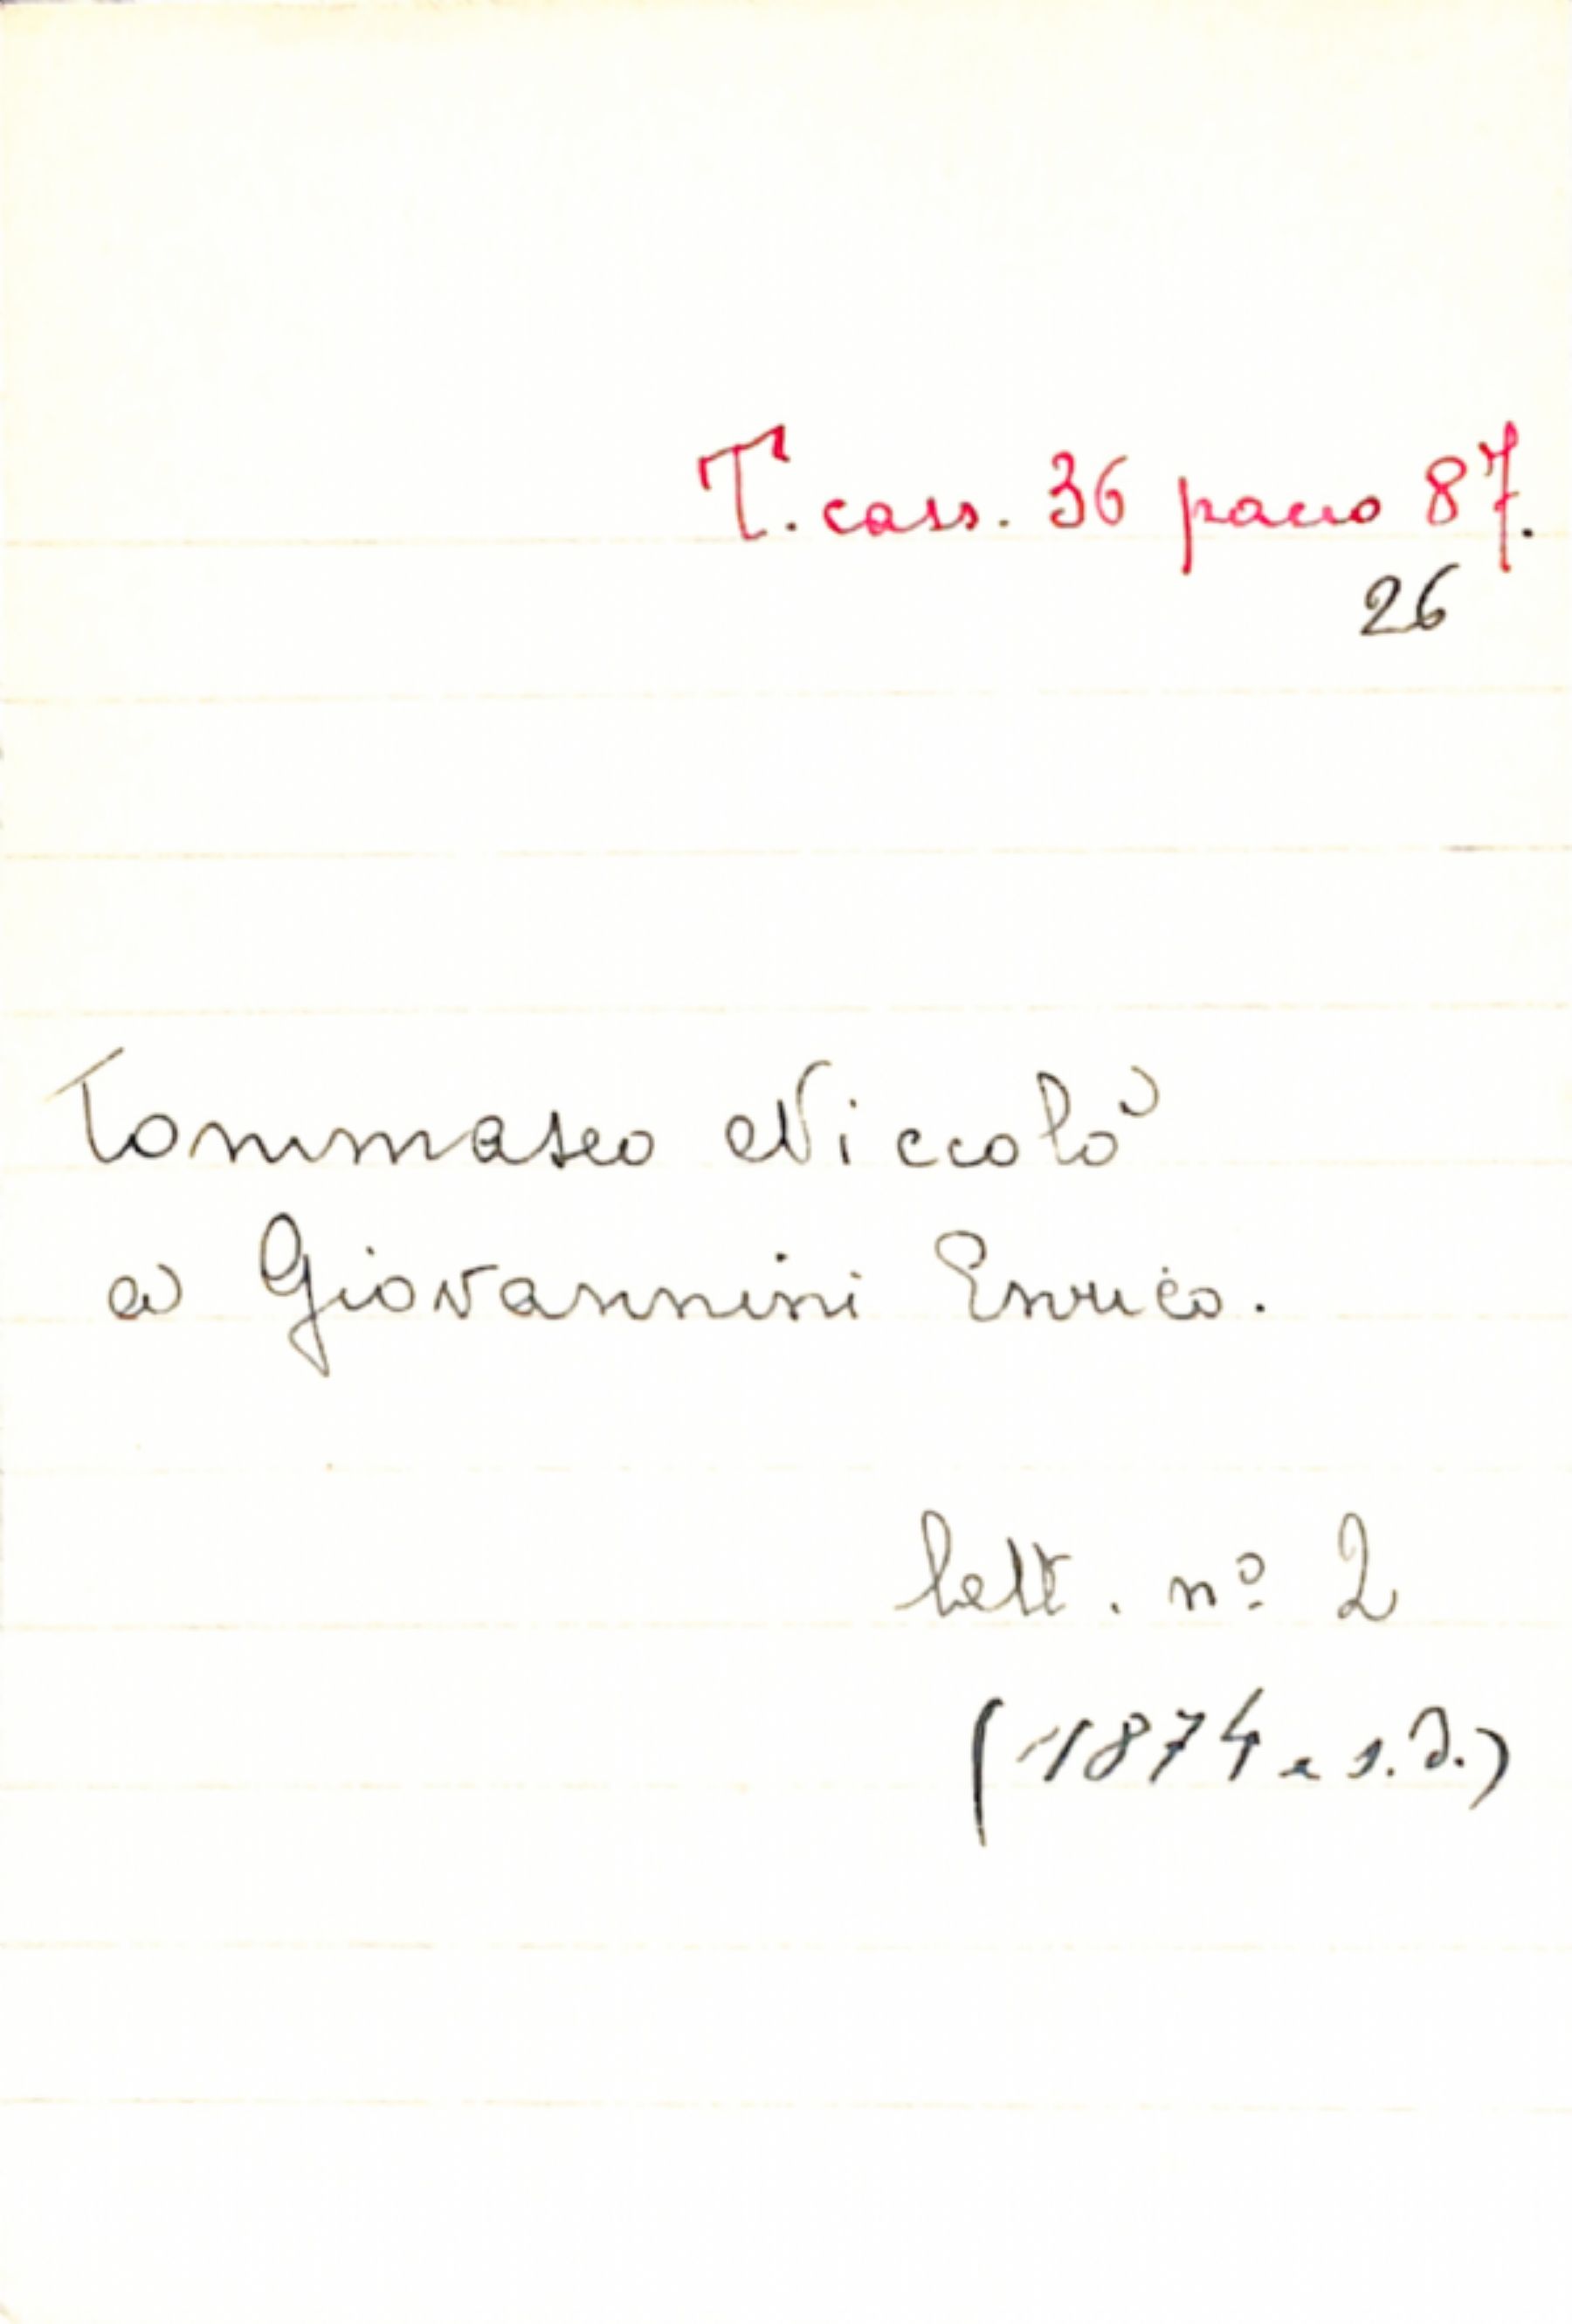 T. cass. 36 pacco 87.
26
Tommaseo Niccolò
a Giovannini Enrico.
lett. nº 2
(1874 e s.d.)